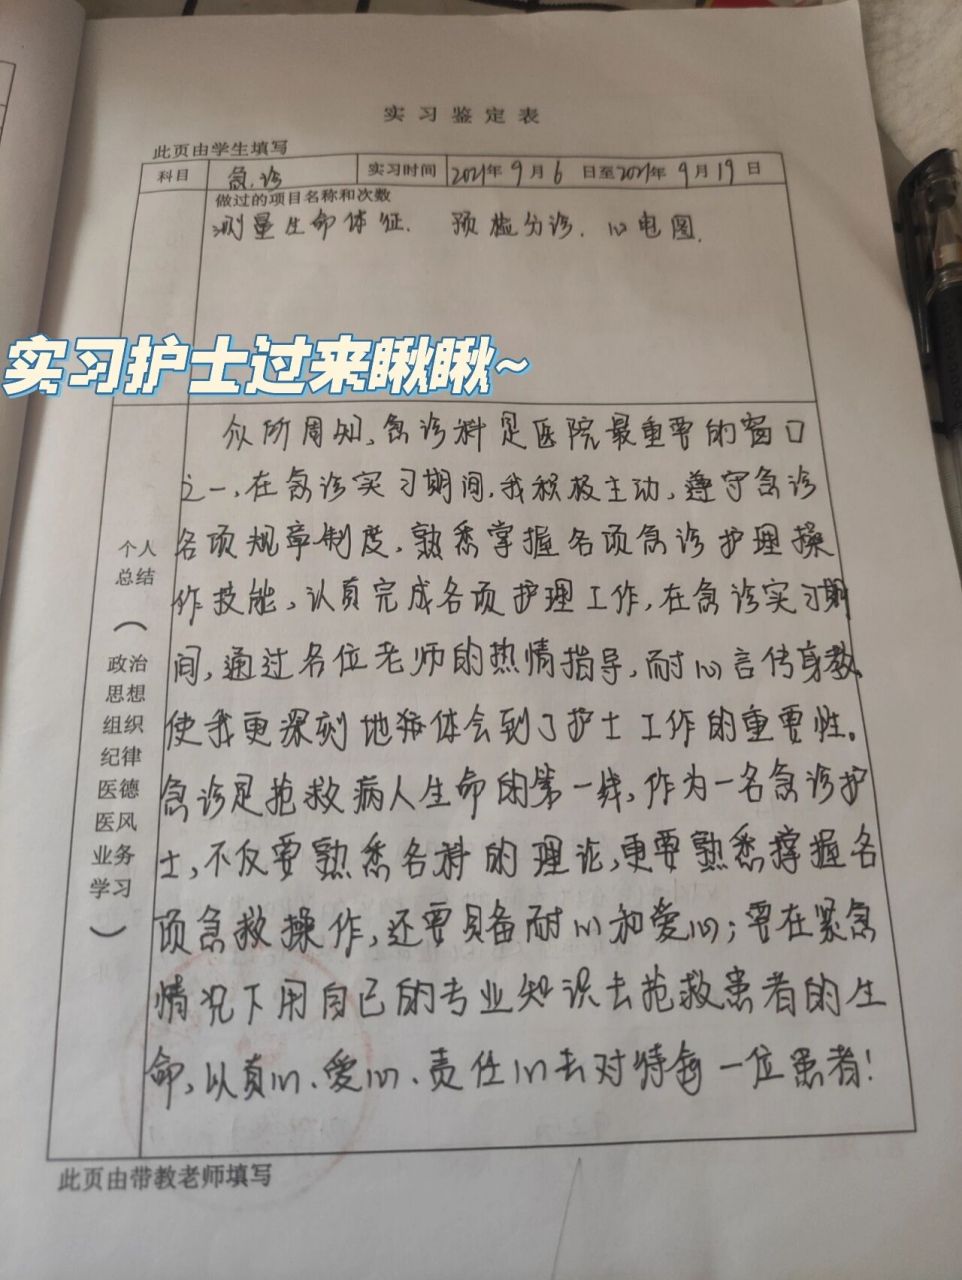 实习鉴定表
此页由学生填写
科目 急诊 实习时间 2021年9月6日至2021年9月19日
做过的项目名称和次数
测量生命体征. 预检分诊. 心电图.
实习护士过来瞅瞅~
个人总结（政治思想组织纪律医德医风业务学习）
众所周知,急诊科是医院最重要的窗口
之一,在急诊实习期间,我积极主动,遵守急诊
各项规章制度,熟悉掌握各项急诊护理操
作技能,认真完成各项护理工作,在急诊实习期
间,通过各位老师的热情指导,耐心言传身教,
使我更深刻地体会到了护士工作的重要性。
急诊是抢救病人生命的第一线,作为一名急诊护
士,不仅要熟悉各种的理论,更要熟悉掌握各
项急救操作,还要具备耐心和爱心;要在紧急
情况下用自己的专业知识去抢救患者的生
命,以真心、爱心、责任心去对待每一位患者!
此页由带教老师填写